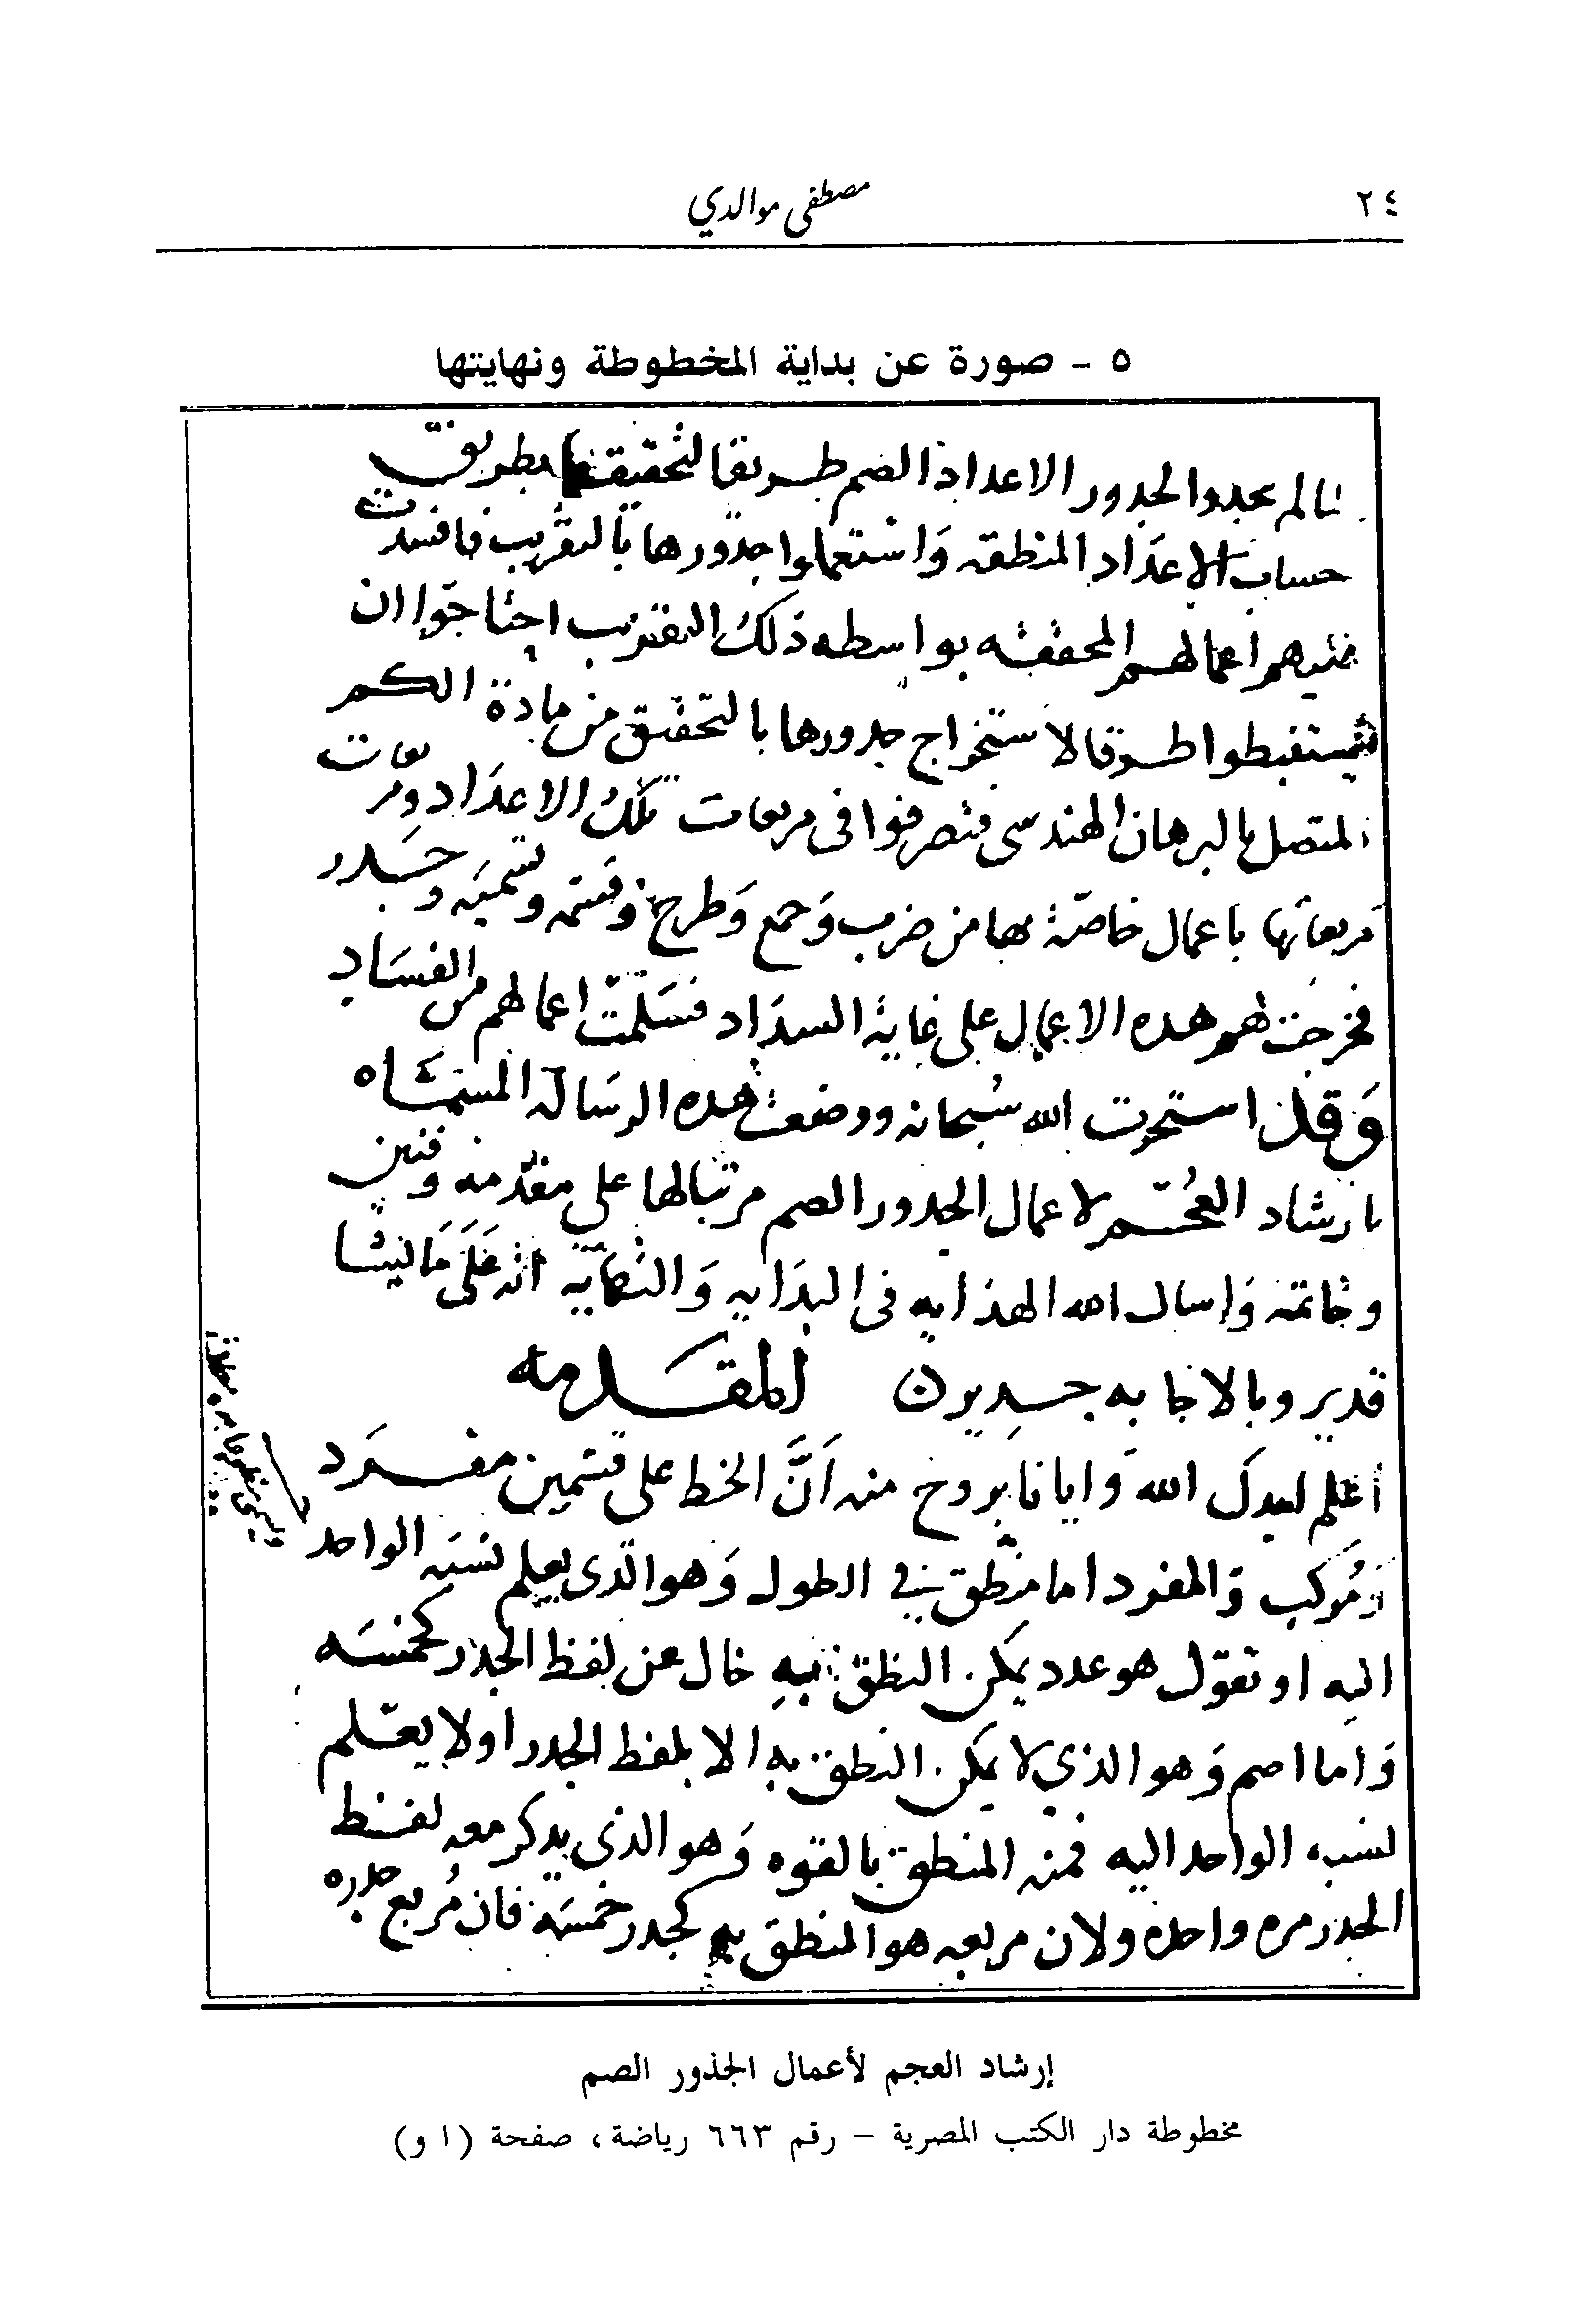 ٢٤
مصطفى موالدي
٥ - صورة عن بداية المخطوطة ونهايتها
لما لم يجدوا الجدور الاعداد الصم طريقا لتحقيقها بطريق
حساب الاعداد المنطقه واستعملوا جدورها بالتقريب فافسدت
عليهم اعمالهم المحققه بواسطه ذلك التقريب احتاجوا ان
يستنبطوا طرقا لاستخراج جدورها بالتحقيق من مادة الكم
المتصل بالبرهان الهندسى فتصرفوا فى مربعات تلك الاعداد ومربعات
مربعاتها باعمال خاصة بها من ضرب وجمع وطرح وقسمه وتسميه وجدر
فخرجت لهم هده الاعمال على غاية السداد فسلمت اعمالهم من الفساد
وقد استخرت الله سبحانه ووضعت هده الرساله المسماه
بارشاد العجم لاعمال الجدور الصم مرتبا لها على مقدمه وفنين
وخاتمه واسال الله الهدايه فى البدايه والنهايه انه على ما يشا
قدير وبالاجابه جدير المقدمه
اعلم ايدك الله وايانا بروح منه ان الخط على قسمين مفرد
ومركب والمفرد اما منطق في الطول وهو الذى يعلم نسبه الواحد
اليه او تقول هو عدد يمكن النطق به خال عن لفظ الجدر كخمسه
واما اصم وهو الذي لا يمكن النطق به الا بلفظ الجدر او لا يعلم
نسبه الواحد اليه فمنه المنطق بالقوه وهو الذي يدكر معه لفظ
الجدر مره واحده ولان مربعه هو المنطق به كجدر خمسه فان مربع جدره
إرشاد العجم لأعمال الجذور الصم
مخطوطة دار الكتب المصرية - رقم ٦٦٣ رياضة، صفحة (١ و)